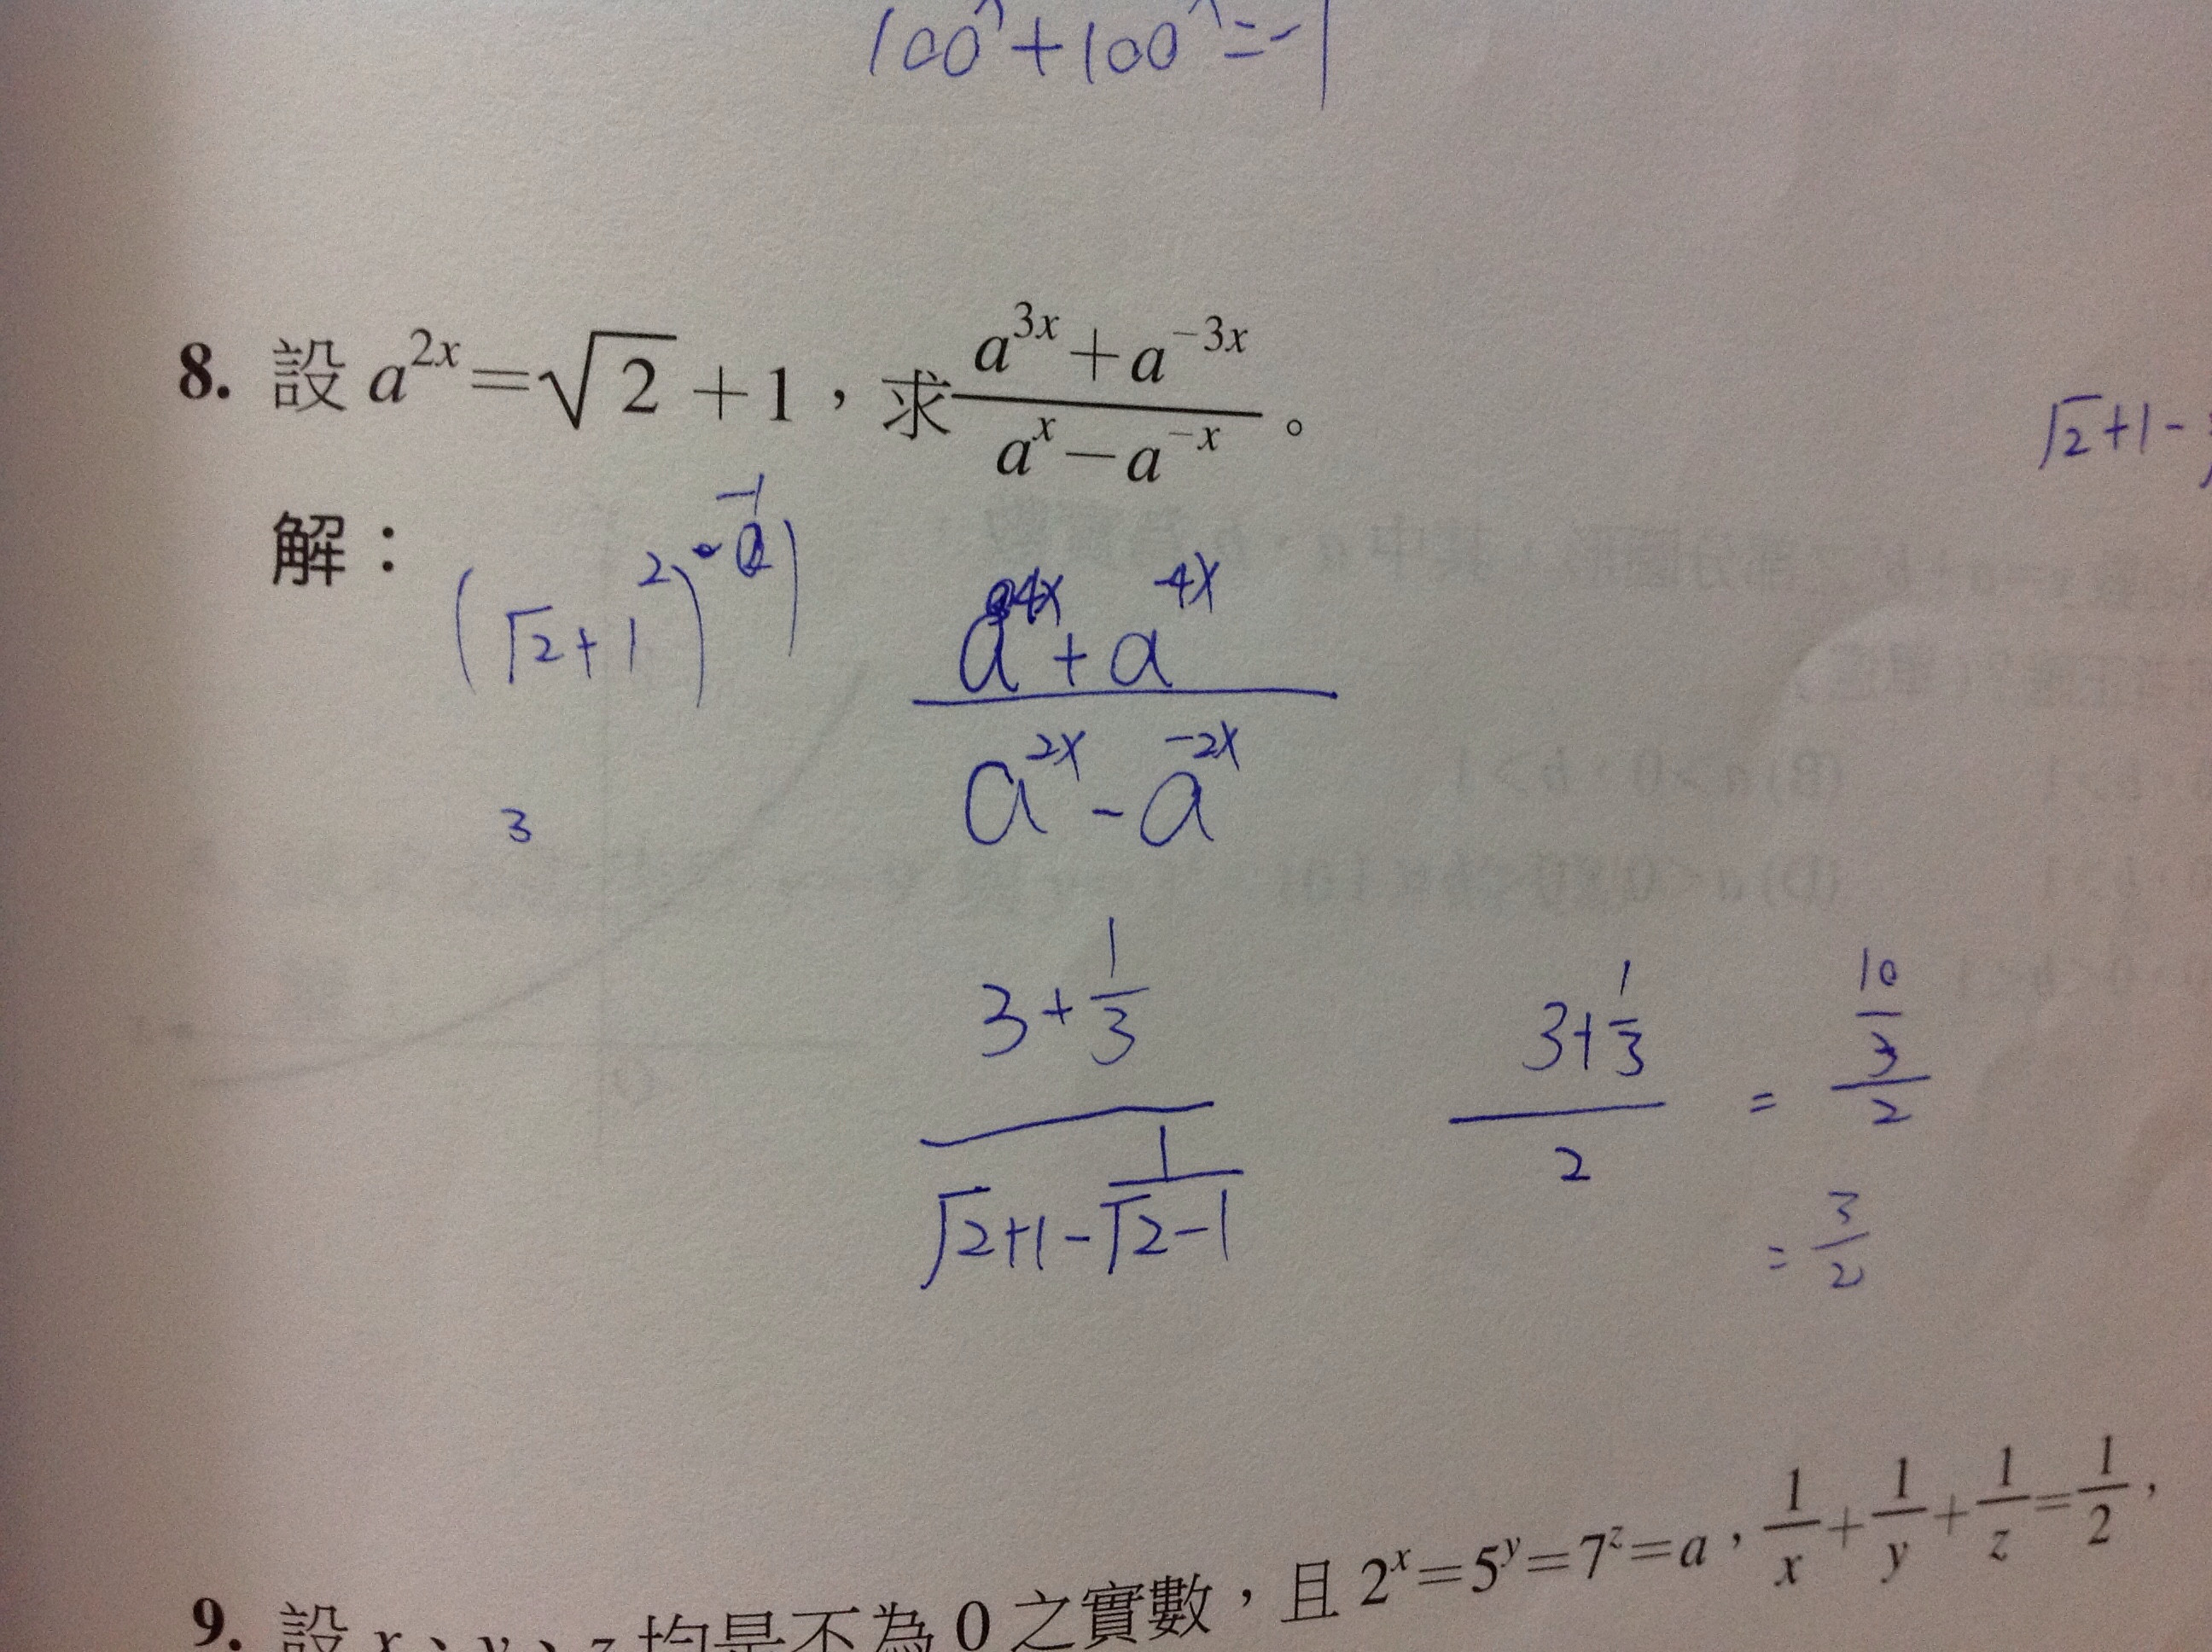 100ˣ+100ˣ=-1
8. 設 a²ˣ=√2+1，求 (a³ˣ+a⁻³ˣ)/(aˣ-a⁻ˣ)。
√2+1-
解：
(√2+1²)⁻¹)
(a⁴ˣ+a⁻⁴ˣ)/(a²ˣ-a⁻²ˣ)
3
(3+1/3)/(√2+1-1/(√2-1))
(3+1/3)/2 = (10/3)/2
= 3/2
9. 設 x、y、z 均是不為 0 之實數，且 2ˣ=5ʸ=7ᶻ=a，1/x+1/y+1/z=1/2，